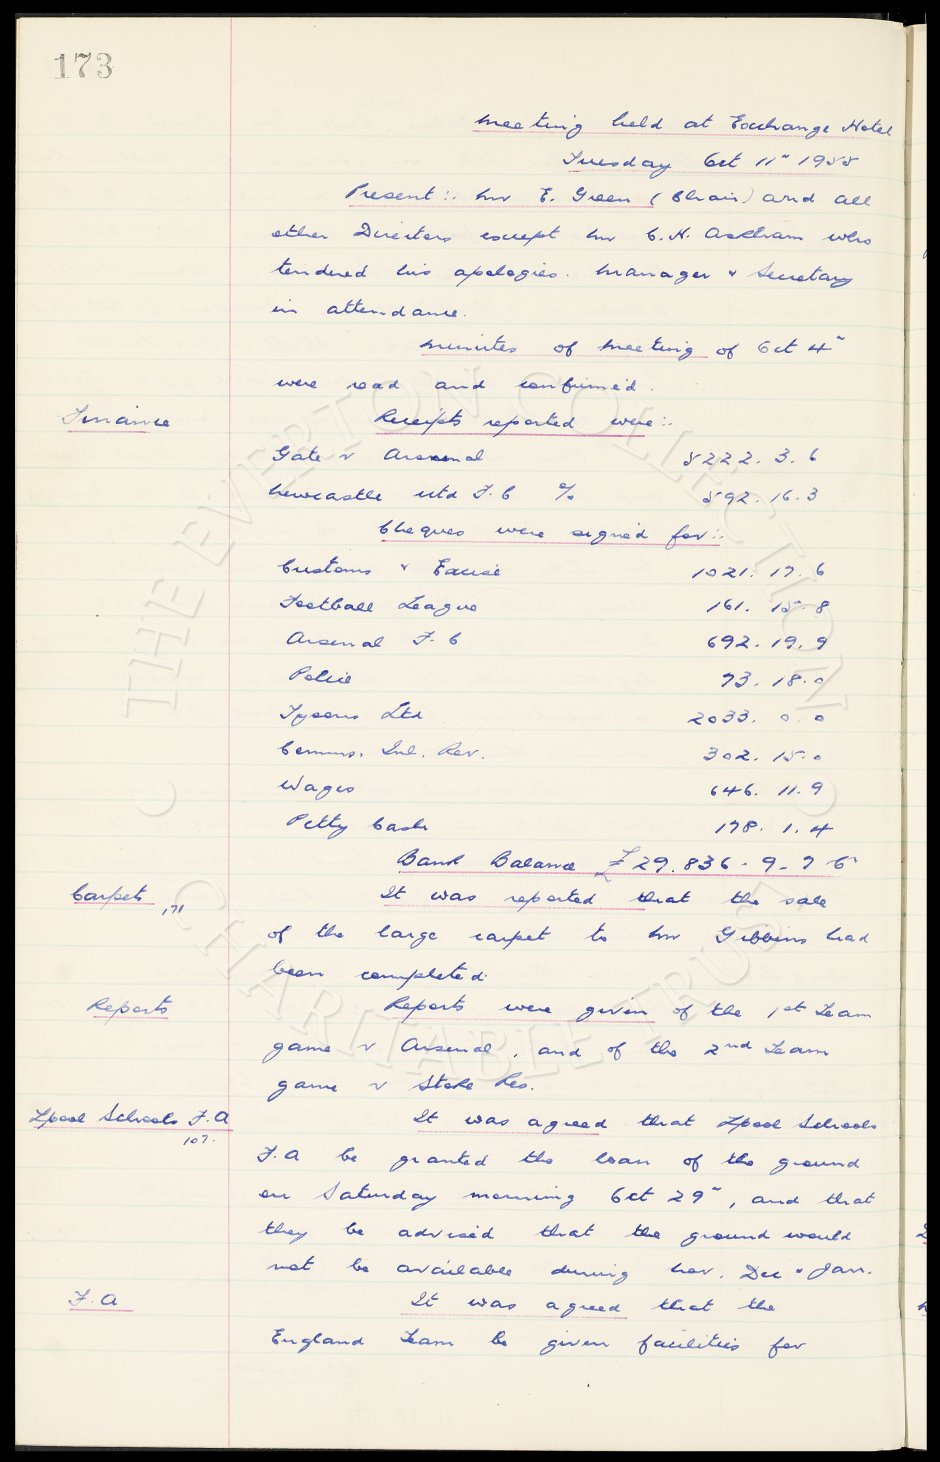 173
Meeting held at Exchange Hotel
Tuesday Oct 11" 1955
Present:. Mr E. Green (Chair) and all
other Directors except Mr C. H. Askham who
tendered his apologies. Manager & Secretary
in attendance.
Minutes of Meeting of Oct 4"
were read and confirmed.
Finance
Receipts reported were:-
Gate v Arsenal 5222. 3. 6
Newcastle Utd F.C % 592. 16. 3
Cheques were signed for:-
Customs & Excise 1021. 17. 6
Football League 161. 15. 8
Arsenal F. C 692. 19. 9
Police 73. 18. 0
Tysons Ltd 2033. 0. 0
Comms. Inl. Rev. 302. 15. 0
Wages 646. 11. 9
Petty Cash 178. 1. 4
Bank Balance £29.836 - 9 - 7 Cr
Carpets 171
It was reported that the sale
of the large carpet to Mr Gibbins had
been completed.
Reports
Reports were given of the 1st Team
game v Arsenal, and of the 2nd Team
game v Stoke Res.
Lpool Schools F.A 107.
It was agreed that Lpool Schools
F.A be granted the loan of the ground
on Saturday morning Oct 29", and that
they be advised that the ground would
not be available during Nov. Dec & Jan.
F.A
It was agreed that the
England Team be given facilities for
THE EVERTON COLLECTION
CHARITABLE TRUST